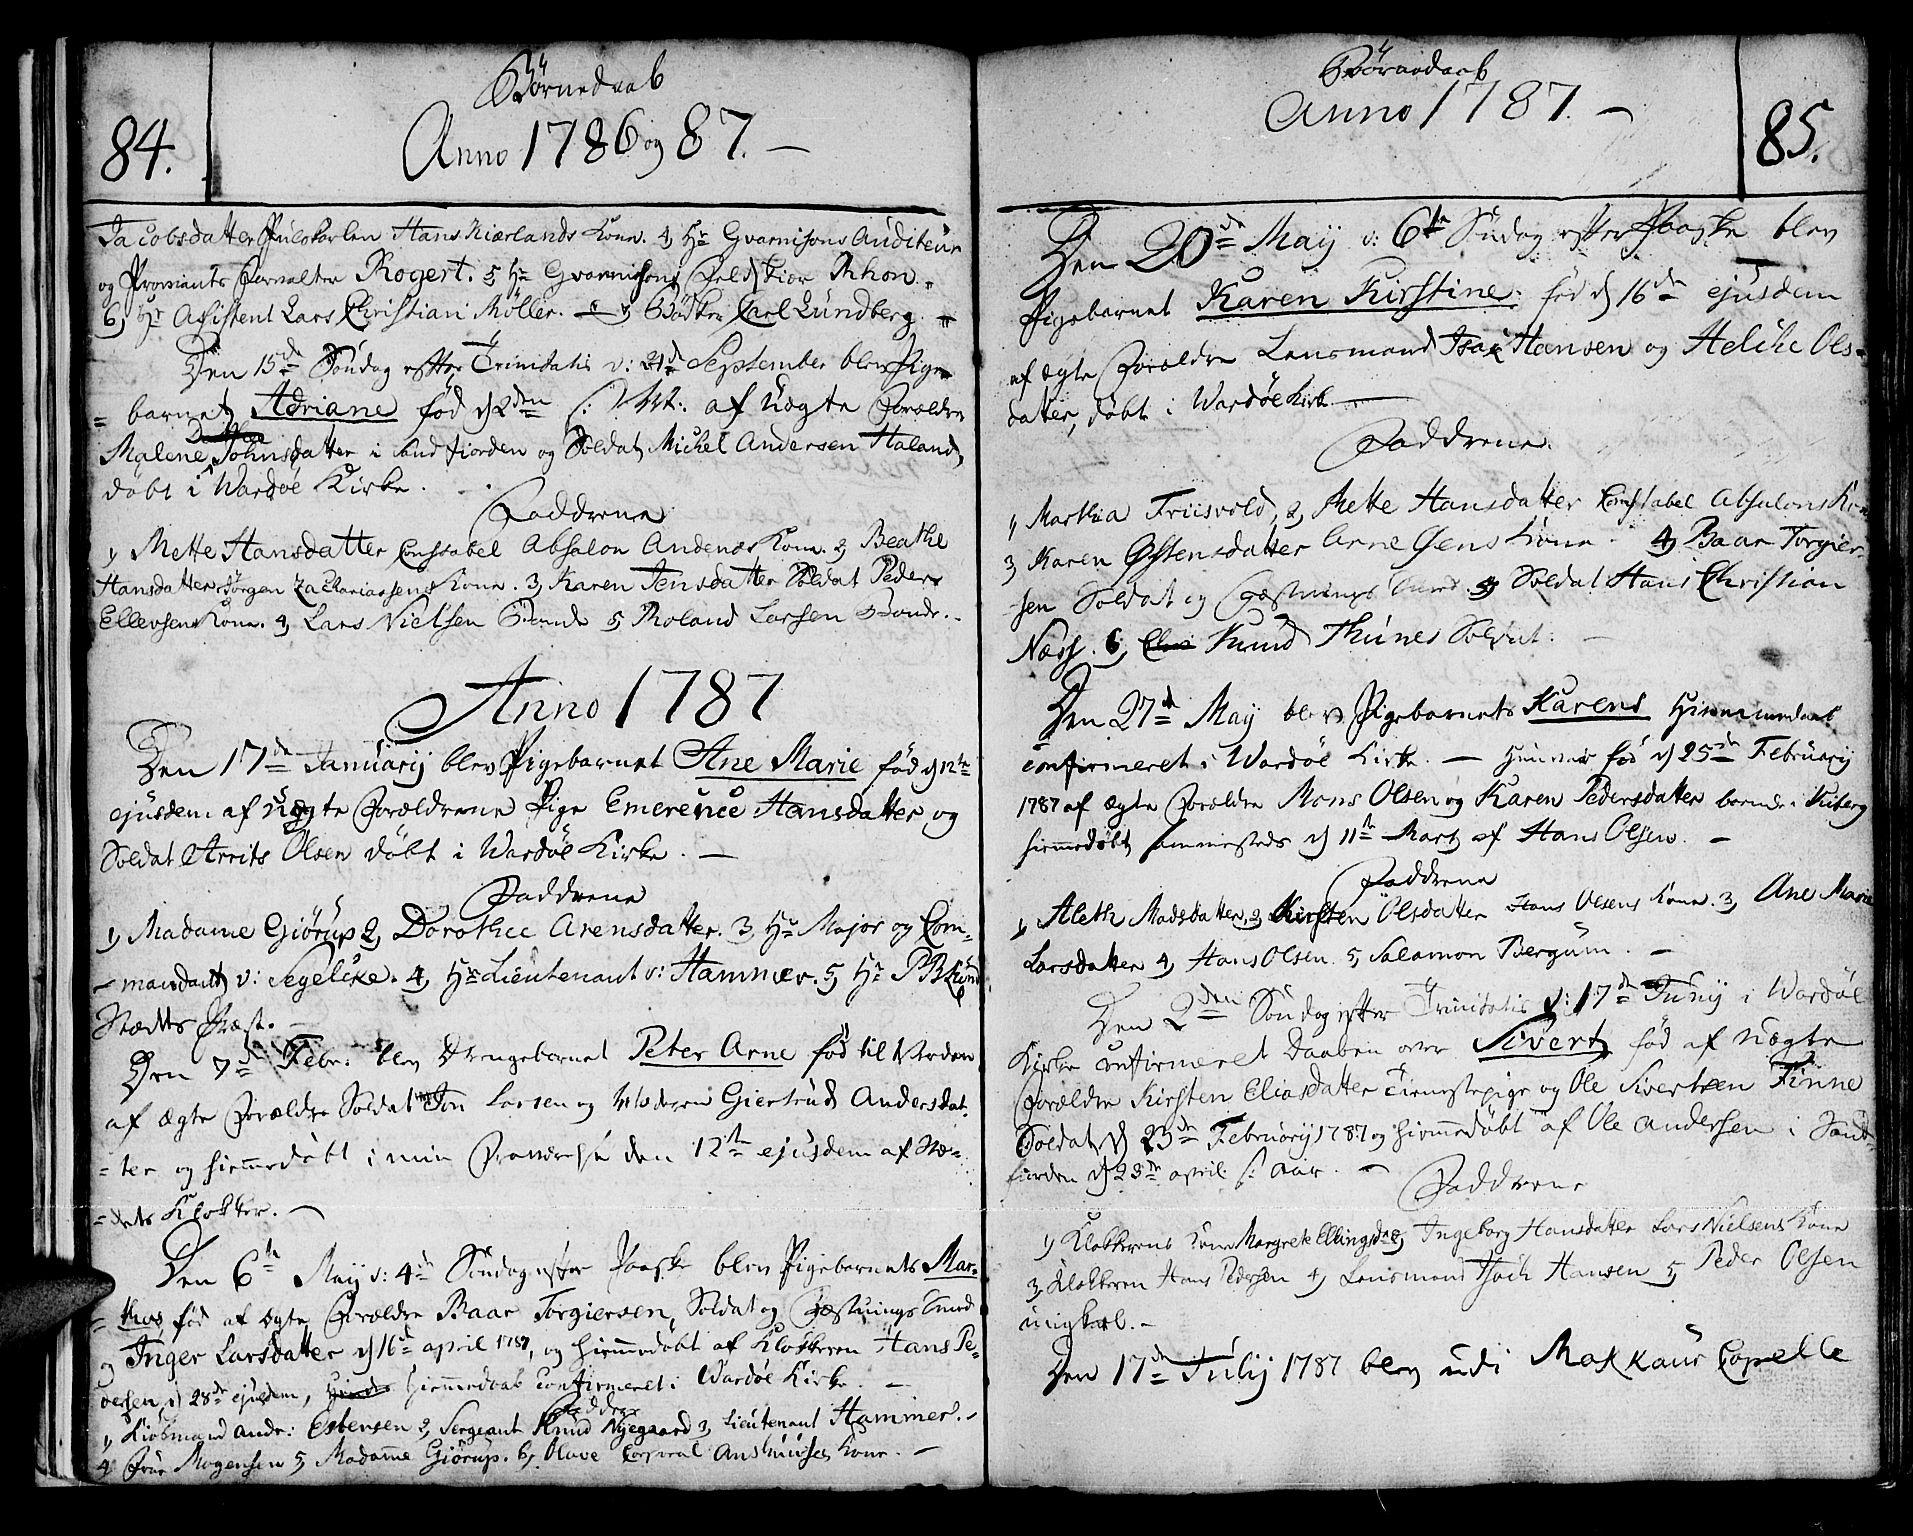 Börnedaab
84. Anno 1786 og 87. —
Jacobsdatter Hans Kiærlands Kone. 4, Hr Gvarnisons Auditeur
og Proviants Forvalter Rogert. 5 Hr Gvarnisons Feldskiær Rhon.
6, Hr Assistent Lars Christian Möller. — 7, Bödker Carl Lundberg.
Den 15de Söndag efter Trinitatis d: 24de September blev Pige-
= barnet Adriane föd d 2den af uægte Forældre
Malene Johnsdatter i Sandfiorden og Soldat Michel Andersen Haland,
döbt i Wardöe Kirke.
Faddrene
1, Mette Hansdatter Constabel Absalon Andenæs Kone. 2, Beathe
Hansdatter Jörgen Zachariassens Kone. 3, Karen Jensdatter Soldat Peder
Ellevsens Kone. 4, Lars Nielsen Bonde 5, Roland Larsen Bonde. -
Anno 1787
Den 17de Januarij blev Pigebarnet Ane Marie föd d 12te
ejusdem af uægte Forældrene Pige Emerence Hansdatter og
Soldat Arrits Olsen döbt i Wardöe Kirke. —
Faddrene
1, Madame Giörup 2, Dorothee Arensdatter. 3, Hr Major og Com-
- mandant v: Segelcke. 4, Hr Lieutenant v: Hammer. 5, Hr P B
Stedets Præst. -
Den 7de Febr: blev Drengebarnet Peter Arne föd til Verden
af ægte Forældre Soldat Jon Larsen og Moderen Giertrud Andersdat-
= ter og hiemmedöbt i min Fraværelse den 12te ejusdem af Ste-
= dets Klokker. —
Den 6te Maij d: 4de Söndag efter Paaske blev Pigebarnets Mar-
= föd af ægte Forældre Baar Torgiersen, Soldat og Fæstnings Smed
og Inger Larsdatter d 16de april 1787, og hiemmedöbt af Klokkeren Hans Pe-
dersen d 28de ejusdem, Hiemmedaab confirmeret i Wardöe Kirke. —
Faddere
1, Kiöbmand Andr: Estensen 2, Sergeant Knud Nyegaard 3, Lieutenant Hammer. -
4 Frue Mogensen 5, Madame Giörup. 6, Olave Corporal Kone. —
Börnedaab
Anno 1787. — 85.
Den 20de Maij d: 6te Söndag efter Paaske blev
Pigebarnet Karen Kirstine. föd d 16de ejusdem
af ægte Forældre Lensmand Isax Hansen og Helche Ols-
datter, döbt i Wardöe Kirke. —
Faddrene.
1, Martha Friisvold, 2, Mette Hansdatter Constabel Absalons Kone
3, Karen Østensdatter Arne Kone. 4, Baar Torgier-
sen Soldat og Fæstnings Smed. 5, Soldat Hans Christian
Næss. 6, Knud Thunes Soldat. —
Den 27de Maij blev Pigebarnets Karens Hiemmedaab
confirmeret i Wardöe Kirke. — Hun var föd d 25de Februarij
1787 af ægte Forældre Mons Olsen og Karen Pedersdatter boende i Kiberg
hiemmedöbt sammesteds d 11te Mart af Hans Olsen. -
Faddrene
1, Aleth Madsdatter 2, Kirsten Olsdatter Hans Olsens Kone. 3, Ane Marie
Larsdatter 4, Hans Olsen. 5, Salamon Bergum. -
Den 2den Söndag efter Trinitatis d: 17de Junij i Wardöe
Kirke confirmeret Daaben over Sivert föd af uægte
Forældre Kirsten Eliasdatter Tienestepige og Ole Sivertsen Finne
Soldat d 23de Februarij 1787 og hiemmedöbt af Ole Andersen i Sand-
fiorden d 28de april s: aar. —
Faddrene
1, Klokkerens Kone Margrete Ellingsd 2, Ingeborg Hansdatter Lars Nielsens Kone
3, Klokkeren Hans Pedersen 4, Lensmand Isach Hansen 5, Peder Olsen
ungkarl. -
Den 17de Julij 1787 blev udi Makkaur Capelle